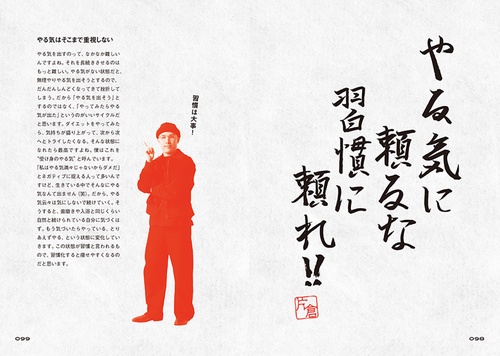 やる気に
頼るな
習慣に
頼れ!!
片倉
098
やる気はそこまで重視しない
やる気を出すのって、なかなか難しい
んですよね。それを長続きさせるのは
もっと難しい。やる気がない状態だと、
無理やりやる気を出そうとするので、
だんだんしんどくなってきて挫折して
しまう。だから「やる気を出そう」と
するのではなく、「やってみたらやる
気が出た」というのがいいサイクルだ
と思います。ダイエットをやってみた
ら、気持ちが盛り上がって、次から次
へとトライしたくなる。そんな状態に
なれたら最高ですよね。僕はこれを
“受け身のやる気”と呼んでいます。
「私はやる気満々じゃないからダメだ」
とネガティブに捉える人って多いんで
すけど、生きている中でそんなにやる
気なんて出ません（笑）。だから、やる
気云々は気にしないで続けていく。そ
うすると、歯磨きや入浴と同じくらい
自然と続けられている自分に気づくは
ず。もう気づいたらやっている、とり
あえずやる、という状態に変化してい
きます。この状態が習慣と言われるも
ので、習慣化すると痩せやすくなるの
だと思います。
習慣は大事！
099